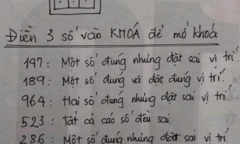 Điền 3 số vào KHOÁ để mở khoá
147: Một số đúng nhưng đặt sai vị trí.
189: Một số đúng và đặt đúng vị trí.
964: Hai số đúng nhưng đặt sai vị trí.
523: Tất cả các số đều sai
286: Một số đúng nhưng đặt sai vị trí